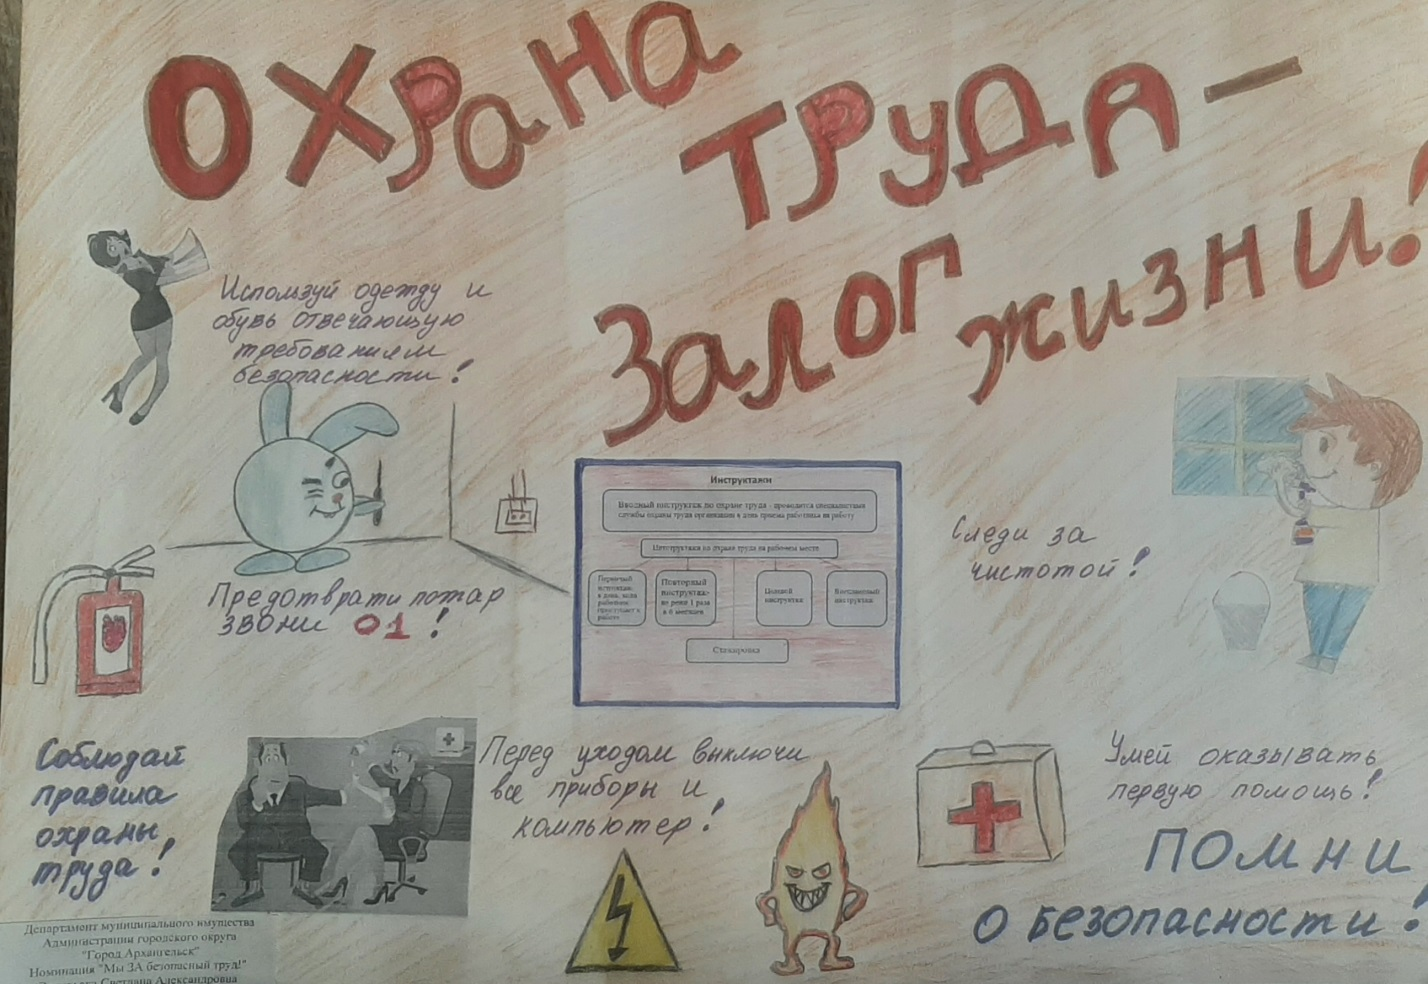 Охрана
труда –
Залог
жизни!
Используй одежду и
обувь отвечающую
требованиям
безопасности!
Предотврати пожар
звони 01!
Инструктажи
Вводный инструктаж по охране труда - проводится специалистом
службы охраны труда организации в день приема работника на работу
Инструктажи по охране труда на рабочем месте
Первичный
инструктаж-
в день, когда
работник
приступает к
работе
Повторный
инструктаж-
не реже 1 раза
в 6 месяцев
Целевой
инструктаж
Внеплановый
инструктаж
Стажировка
Следи за
чистотой!
Соблюдай
правила
охраны
труда!
Перед уходом выключи
все приборы и
компьютер!
Умей оказывать
первую помощь!
ПОМНИ
О безопасности!
Департамент муниципального имущества
Администрации городского округа
"Город Архангельск"
Номинация "Мы ЗА безопасный труд!"
Светлана Александровна